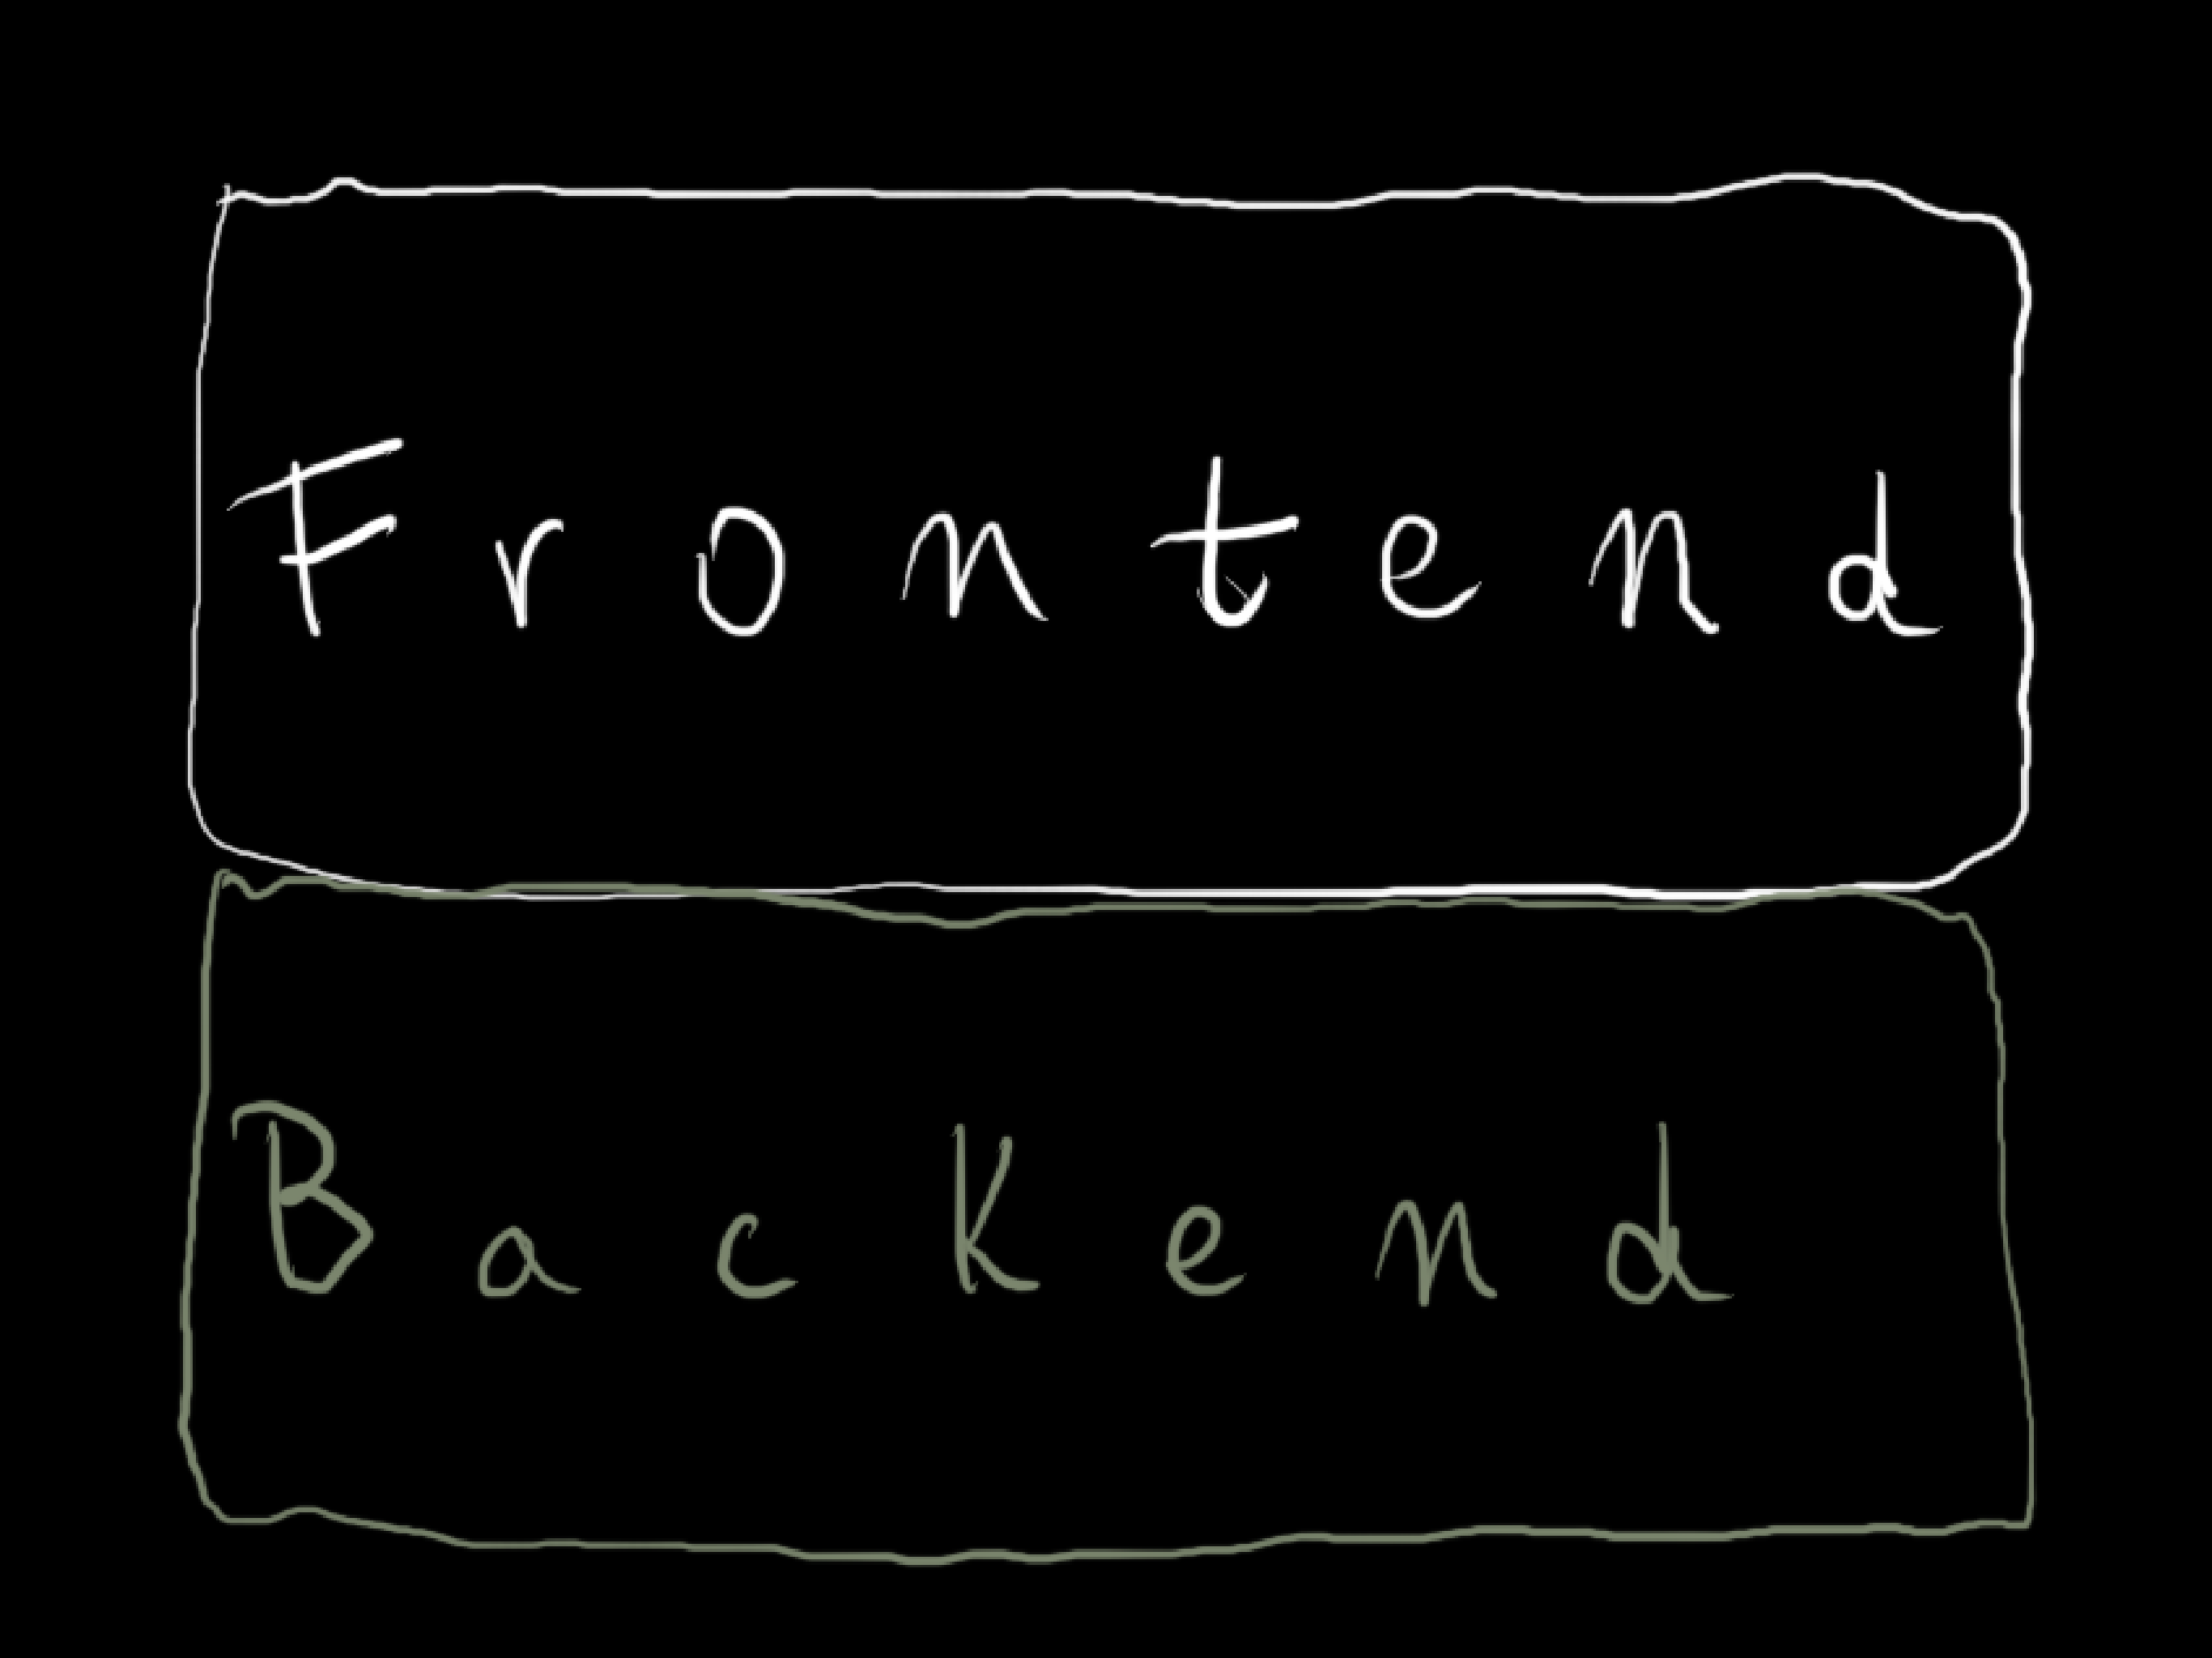 Frontend
Backend